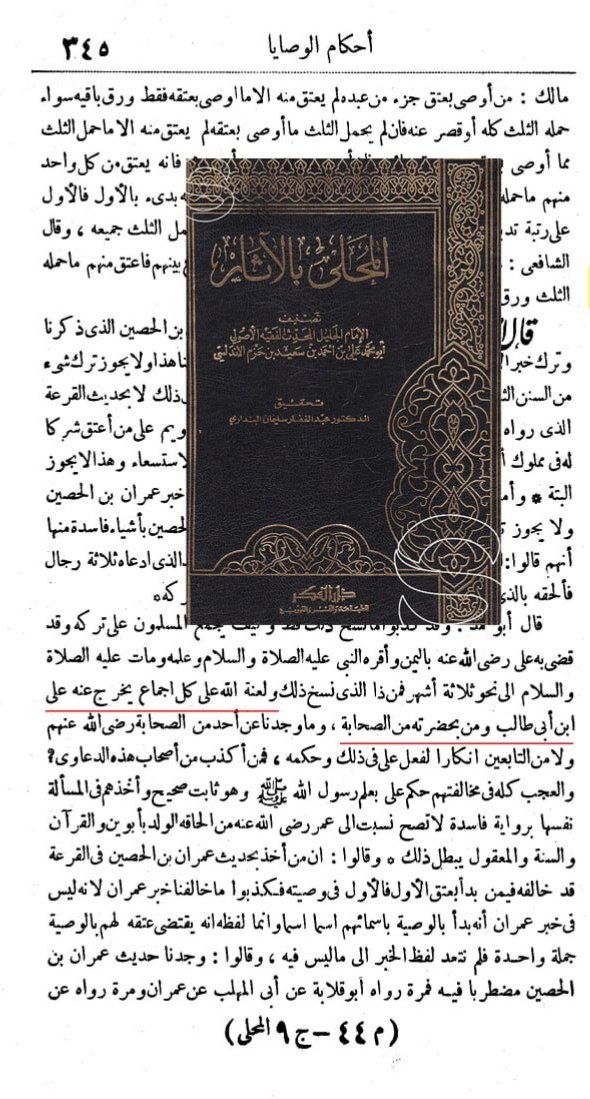 أحكام الوصايا ٣٤٥
مالك : من أوصى بعتق جزء من عبده لم يعتق منه الا ما اوصى بعتقه فقط ورق باقيه سواء
حمله الثلث كله أو قصر عنه فان لم يحمل الثلث ما أوصى بعتقه لم يعتق منه الا ما حمل الثلث
مما أوصى فانه يعتق من كل واحد
منهم ما حمله به بدىء بالأول فالأول
على رتبة مل الثلث جميعه ، وقال
الشافعى : بينهم فاعتق منهم ما حمله
الثلث ورق
قال بن الحصين الذى ذكرنا
وترك خبر نا هذا ولا يجوز ترك شىء
من السنن ذلك لا بحديث القرعة
الذى رواه ويم على من أعتق شركا
له فى مملوك لاستسعاء وهذا لا يجوز
البتة * خبر عمران بن الحصين
ولا يجوز لحصين بأشياء فاسدة منها
أنهم قالوا : الذى ادعاه ثلاثة رجال
فألحقه بالذى كه *
المحلى بالآثار
تصنيف
الإمام الجليل المحدث الفقيه الأصولي
أبو محمد علي بن أحمد بن سعيد بن حزم الأندلسي
تحقيق
الدكتور عبد الغفار سليمان البنداري
دار الفكر
للطباعة والنشر والتوزيع
قال المسلمون على تركه وقد
قضى به على رضى الله عنه باليمن وأقره النبى عليه الصلاة والسلام وعلمه ومات عليه الصلاة
والسلام الى نحو ثلاثة أشهر فمن ذا الذى نسخ ذلك ولعنة الله على كل اجماع يخرج عنه على
ابن أبى طالب ومن بحضرته من الصحابة ، وما وجدنا عن أحد من الصحابة رضى الله عنهم
ولا من التابعين انكارا لفعل على فى ذلك وحكمه ، فمن أكذب من أصحاب هذه الدعاوى ؟
والعجب كله فى مخالفتهم حكم على بعلم رسول الله ﷺ وهو ثابت صحيح وأخذهم فى المسألة
نفسها برواية فاسدة لا تصح نسبت الى عمر رضى الله عنه من الحاقه الولد بأبوين والقرآن
والسنة والمعقول يبطل ذلك * وقالوا : ان من أخذ بحديث عمران بن الحصين فى القرعة
قد خالفه فيمن بدأ بعتق الأول فالأول فى وصيته فكذبوا ما خالفنا خبر عمران لانه ليس
فى خبر عمران أنه بدأ بالوصية باسمائهم اسما اسما وانما لفظه انه يقتضى عتقه لهم بالوصية
جملة واحدة فلم نتعد لفظ الخبر الى ما ليس فيه ، وقالوا : وجدنا حديث عمران بن
الحصين مضطربا فيه فمرة رواه أبو قلابة عن أبى المهلب عن عمران ومرة رواه عن
(م ٤٤ – ج ٩ المحلى)